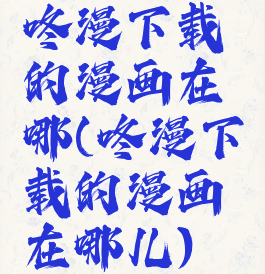 咚漫下载
的漫画在
哪(咚漫下
载的漫画
在哪儿)